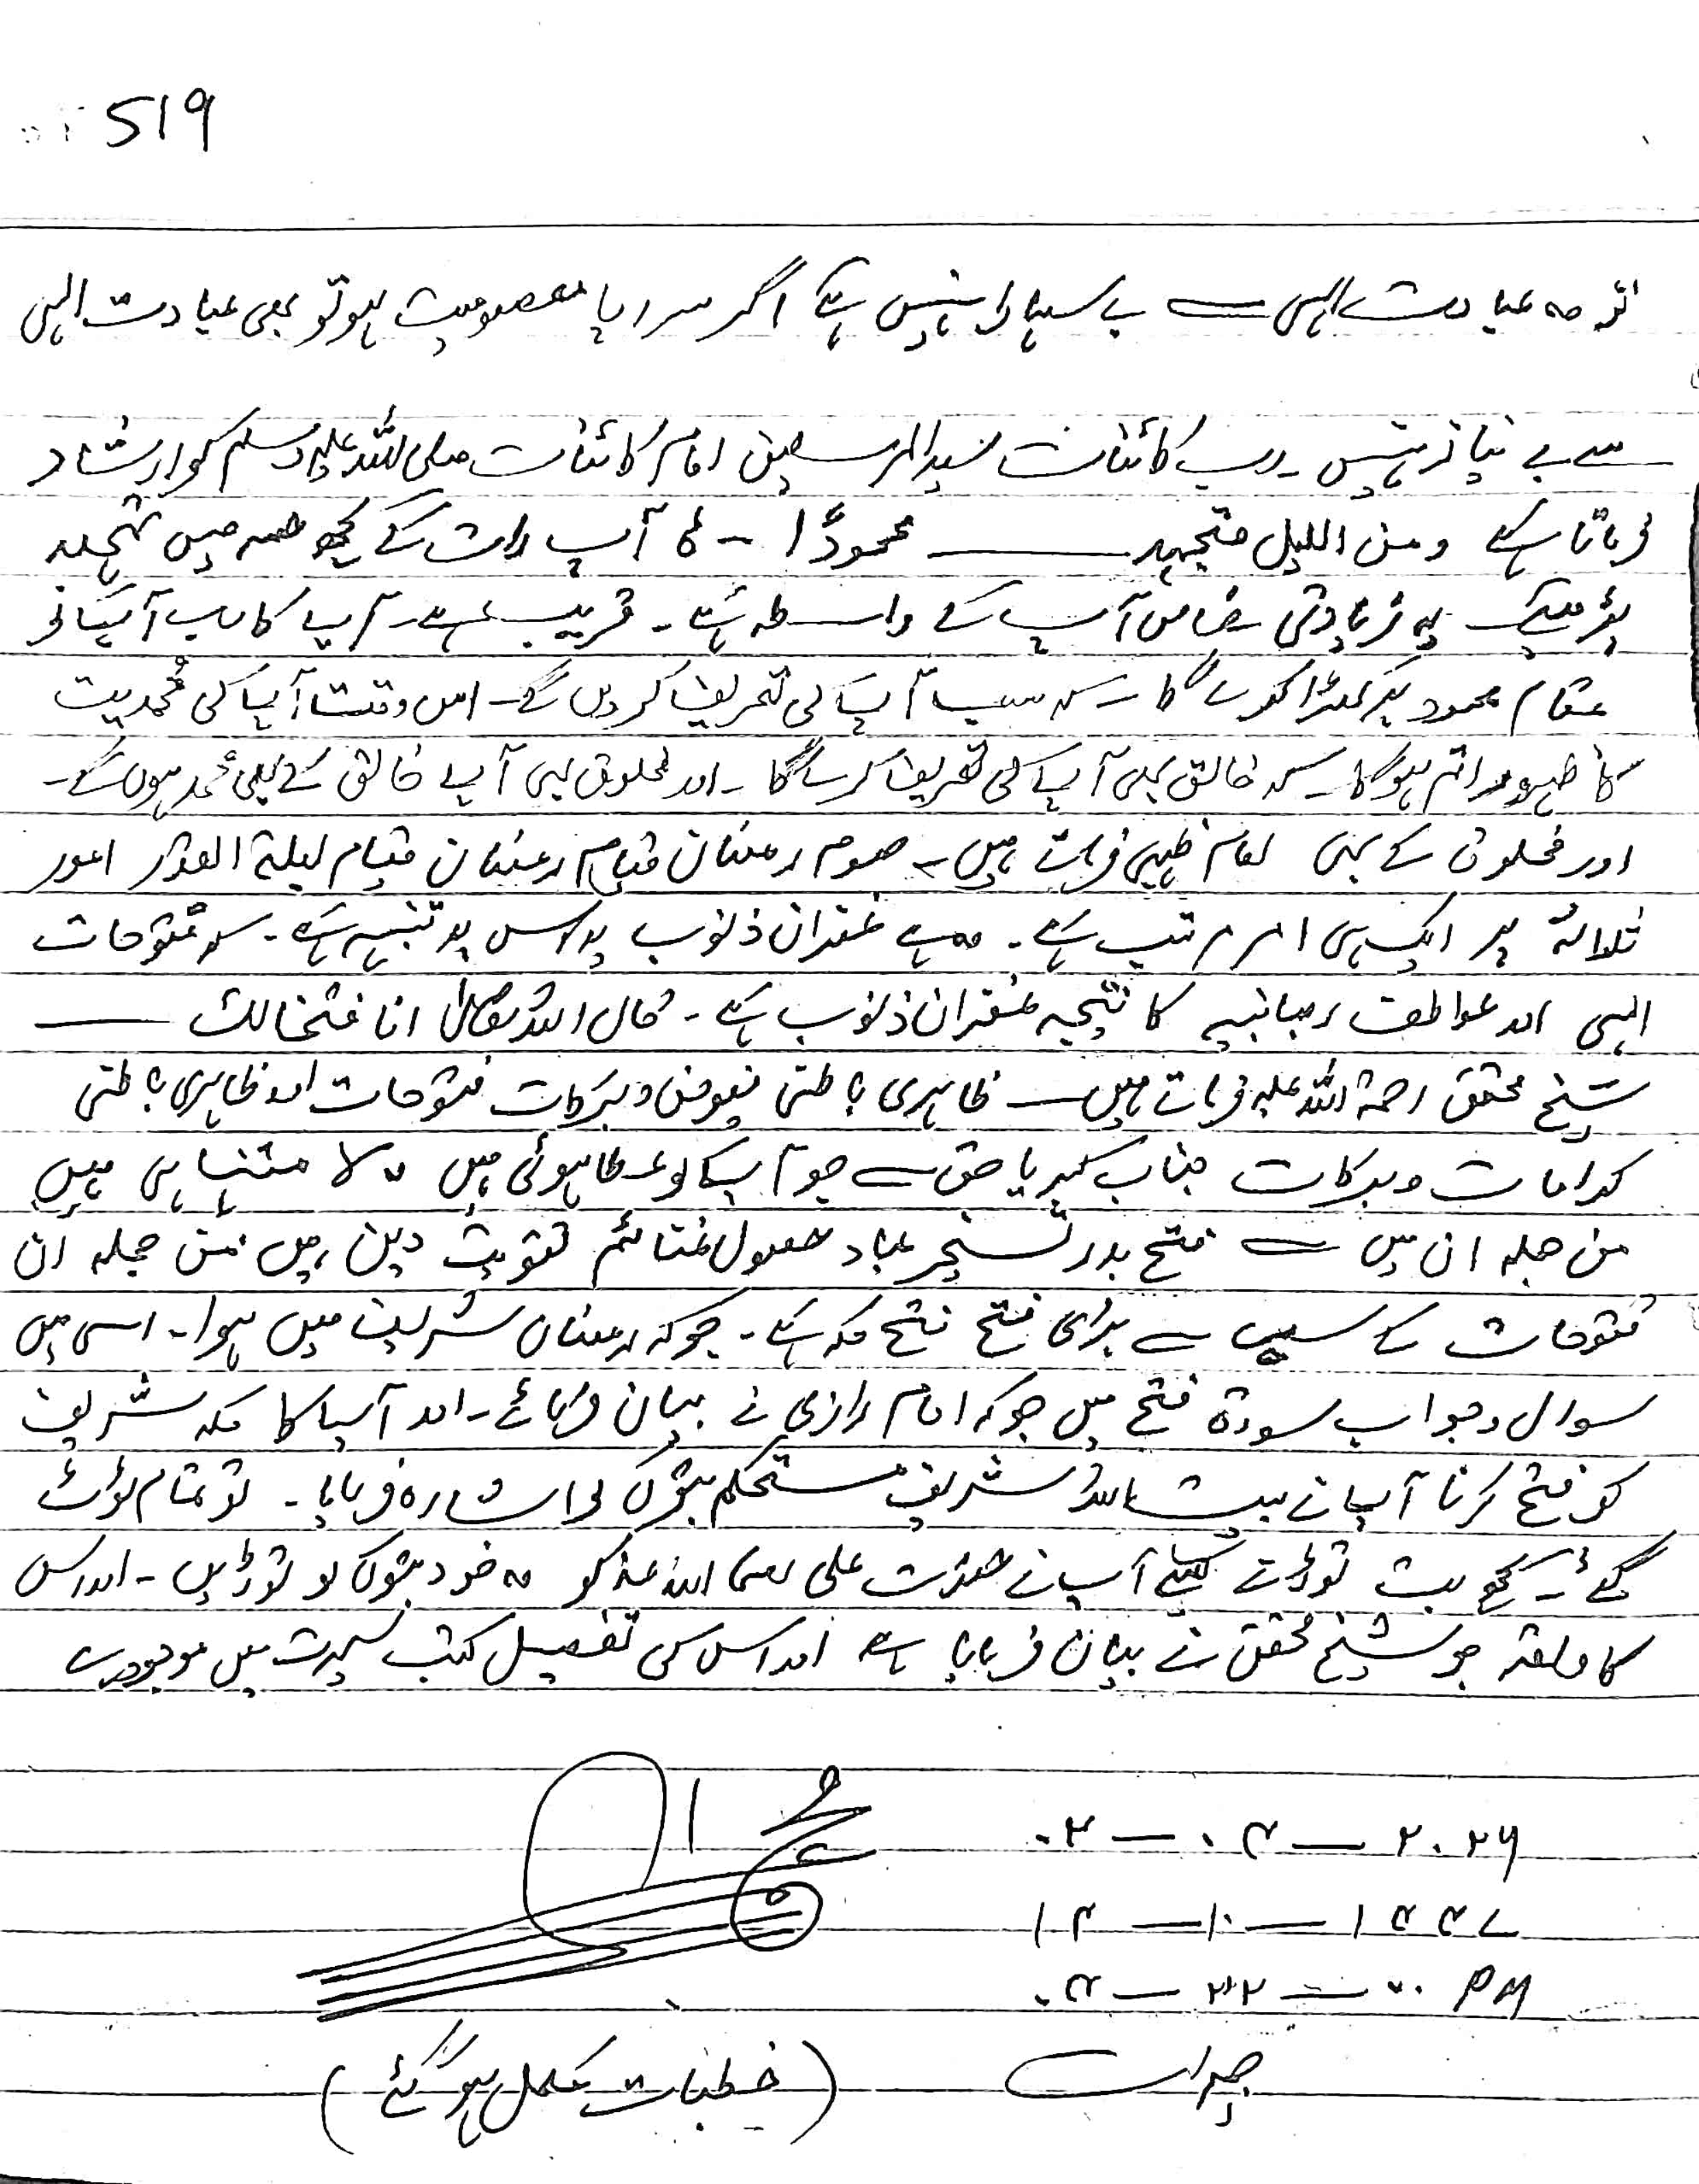 519
تو وہ عبادت الہی سے بے سہارا نہیں ہے اگر سراپا معصومیت ہو تو بھی عبادت الہی
سے بے نیاز نہیں۔ رب کائنات سید المرسلین امام کائنات صلی اللہ علیہ وسلم کو ارشاد
فرماتا ہے ومن الليل فتهجد ــــــ محمودًا ۔ آپ رات کے کچھ حصہ میں تہجد
یہ زیادتی خاص آپ کے واسطہ ہے۔ قریب ہے۔ آپ کا رب آپ کو
مقام محمود پر کھڑا کرے گا۔ کہ سب آپ کی تعریف کریں گے۔ اس وقت آپ کی محمدیت
کا ظہور اتم ہوگا۔ کہ خالق بھی آپ کی تعریف کرے گا۔ اور مخلوق بھی آپ خالق کے بھی محمد ہوں گے۔
اور مخلوق کے بھی امام طیبی فرماتے ہیں۔ صوم رمضان قیام رمضان قیام لیلۃ القدر امور
ثلاثہ پر ایک ہی امر مرتب ہے۔ وہ ہے غفران ذنوب اس پر تنبیہ ہے۔ کہ فتوحات
الہی اور عواطف ربانیہ کا نتیجہ غفران ذنوب ہے۔ قال اللہ تعالیٰ انا فتحنا لك ــــ
شیخ محقق رحمۃ اللہ علیہ فرماتے ہیں ــ ظاہری باطنی فیوض و برکات فتوحات اور ظاہری باطنی
کرامات و برکات جناب کبریا حق سے جو آپ کو عطا ہوئی ہیں وہ لا متناہی ہیں
من جملہ ان میں سے فتح بدر تسخیر عباد حصول غنائم تقویت دین ہیں من جملہ ان
فتوحات کے سب سے بڑی فتح فتح مکہ ہے۔ جو کہ رمضان شریف میں ہوا۔ اسی میں
سوال و جواب سورۃ فتح میں جو کہ امام رازی نے بیان فرمائے۔ اور آپ کا مکہ شریف
کو فتح کرنا آپ نے بیت اللہ شریف مستحکم بتوں کو اشارہ فرمایا۔ تو تمام ٹوٹ
گئے۔ کچھ بت توڑنے کیلئے آپ نے حضرت علی رضی اللہ عنہ کو وہ خود بتوں کو توڑیں۔ اور اس
کا واقعہ جو شیخ محقق نے بیان فرمایا ہے اور اس کی تفصیل کتب سیرت میں موجود ہے
۰۲ — ۰۴ — ۲۰۲۶
۱۳ — ۱۰ — ۱۴۴۷
۰۴ — ۳۲ — ۰۰ PM
جمعرات
(خطبات مکمل ہو گئے)